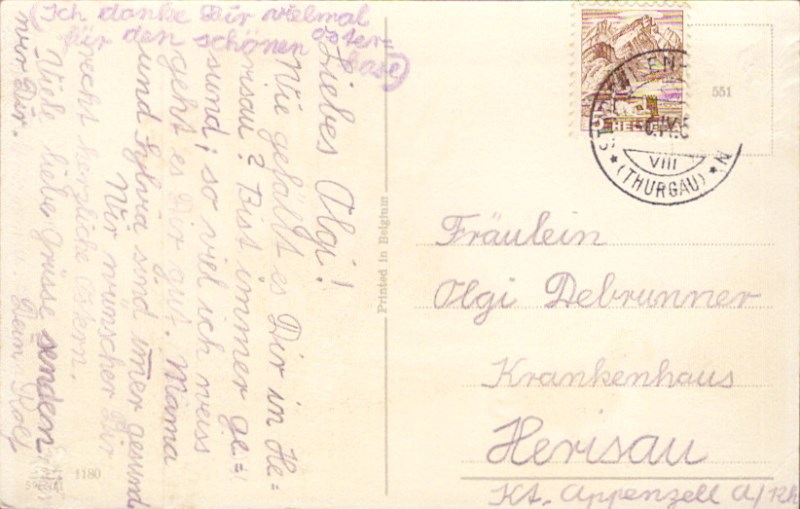 (Ich danke Dir vielmal
für den schönen Oster=
hase)
Liebes Olgi!
Wie gefällt es Dir in He=
risau? Bist immer ge=
sund; so viel ich weiss
geht es Dir gut. Mama
und Sylvia sind immer gesund
Nur wünschen Dir
recht herzliche Ostern.
Viele liebe Grüsse senden
wir Dir.
Dein Rolf
1180
Printed in Belgium
HELVETIA
VIII
(THURGAU)
551
Fräulein
Olgi Debrunner
Krankenhaus
Herisau
Kt. Appenzell A/Rh